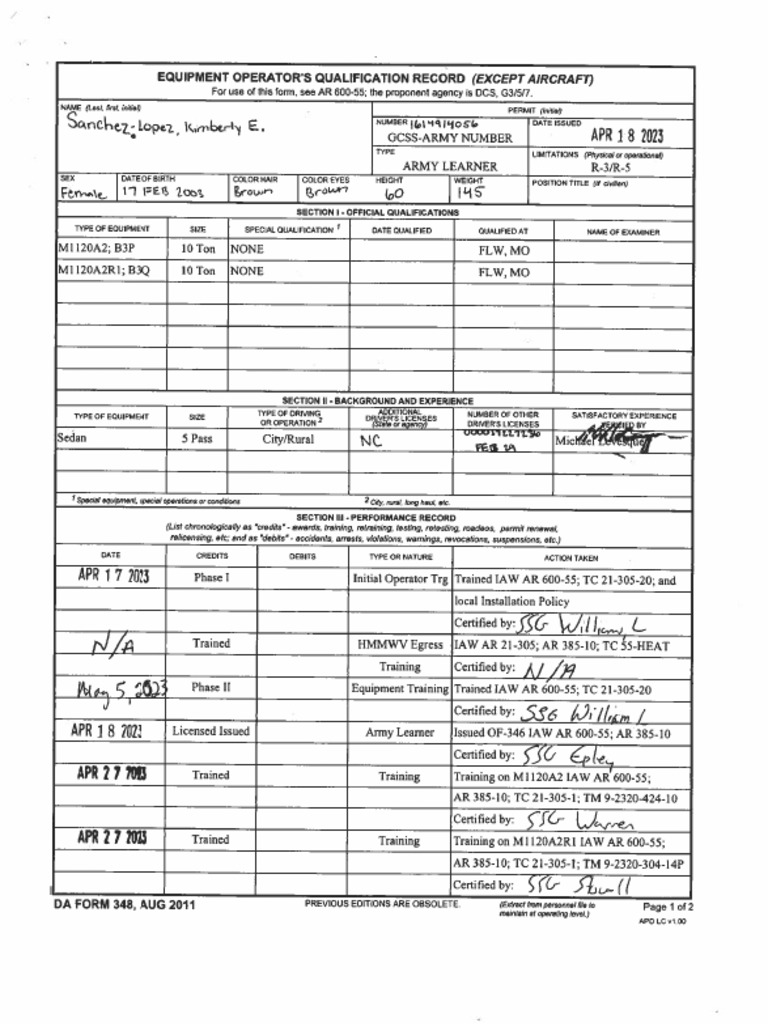 EQUIPMENT OPERATOR'S QUALIFICATION RECORD (EXCEPT AIRCRAFT)
For use of this form, see AR 600-55; the proponent agency is DCS, G3/5/7.
NAME (Last, first, initial)
Sanchez-Lopez, Kimberly E.
PERMIT (Initial)
NUMBER 1614914056
GCSS-ARMY NUMBER
DATE ISSUED
APR 18 2023
TYPE
ARMY LEARNER
LIMITATIONS (Physical or operational)
R-3/R-5
SEX
Female
DATE OF BIRTH
17 FEB 2003
COLOR HAIR
Brown
COLOR EYES
Brown
HEIGHT
60
WEIGHT
145
POSITION TITLE (If civilian)
SECTION I - OFFICIAL QUALIFICATIONS
TYPE OF EQUIPMENT SIZE SPECIAL QUALIFICATION 1 DATE QUALIFIED QUALIFIED AT NAME OF EXAMINER
M1120A2; B3P 10 Ton NONE FLW, MO
M1120A2R1; B3Q 10 Ton NONE FLW, MO
SECTION II - BACKGROUND AND EXPERIENCE
TYPE OF EQUIPMENT SIZE TYPE OF DRIVING OR OPERATION 2 ADDITIONAL DRIVER'S LICENSES (State or agency) NUMBER OF OTHER DRIVER'S LICENSES SATISFACTORY EXPERIENCE VERIFIED BY
Sedan 5 Pass City/Rural NC FEB 29 Michael Levesque
1 Special equipment, special operations or conditions 2 City, rural, long haul, etc.
SECTION III - PERFORMANCE RECORD
(List chronologically as "credits" - awards, training, retraining, testing, retesting, roadeos, permit renewal,
relicensing, etc; and as "debits" - accidents, arrests, violations, warnings, revocations, suspensions, etc.)
DATE CREDITS DEBITS TYPE OR NATURE ACTION TAKEN
APR 17 2023 Phase I Initial Operator Trg Trained IAW AR 600-55; TC 21-305-20; and
local Installation Policy
Certified by: SSG William, L
N/A Trained HMMWV Egress IAW AR 21-305; AR 385-10; TC 55-HEAT
Training Certified by: N/A
May 5, 2023 Phase II Equipment Training Trained IAW AR 600-55; TC 21-305-20
Certified by: SSG William L
APR 18 2023 Licensed Issued Army Learner Issued OF-346 IAW AR 600-55; AR 385-10
Certified by: SSG Epley
APR 27 2023 Trained Training Training on M1120A2 IAW AR 600-55;
AR 385-10; TC 21-305-1; TM 9-2320-424-10
Certified by: SSG Warren
APR 27 2023 Trained Training Training on M1120A2R1 IAW AR 600-55;
AR 385-10; TC 21-305-1; TM 9-2320-304-14P
Certified by: SSG
DA FORM 348, AUG 2011 PREVIOUS EDITIONS ARE OBSOLETE. (Extract from personnel file to
maintain at operating level.) Page 1 of 2
APD LC v1.00